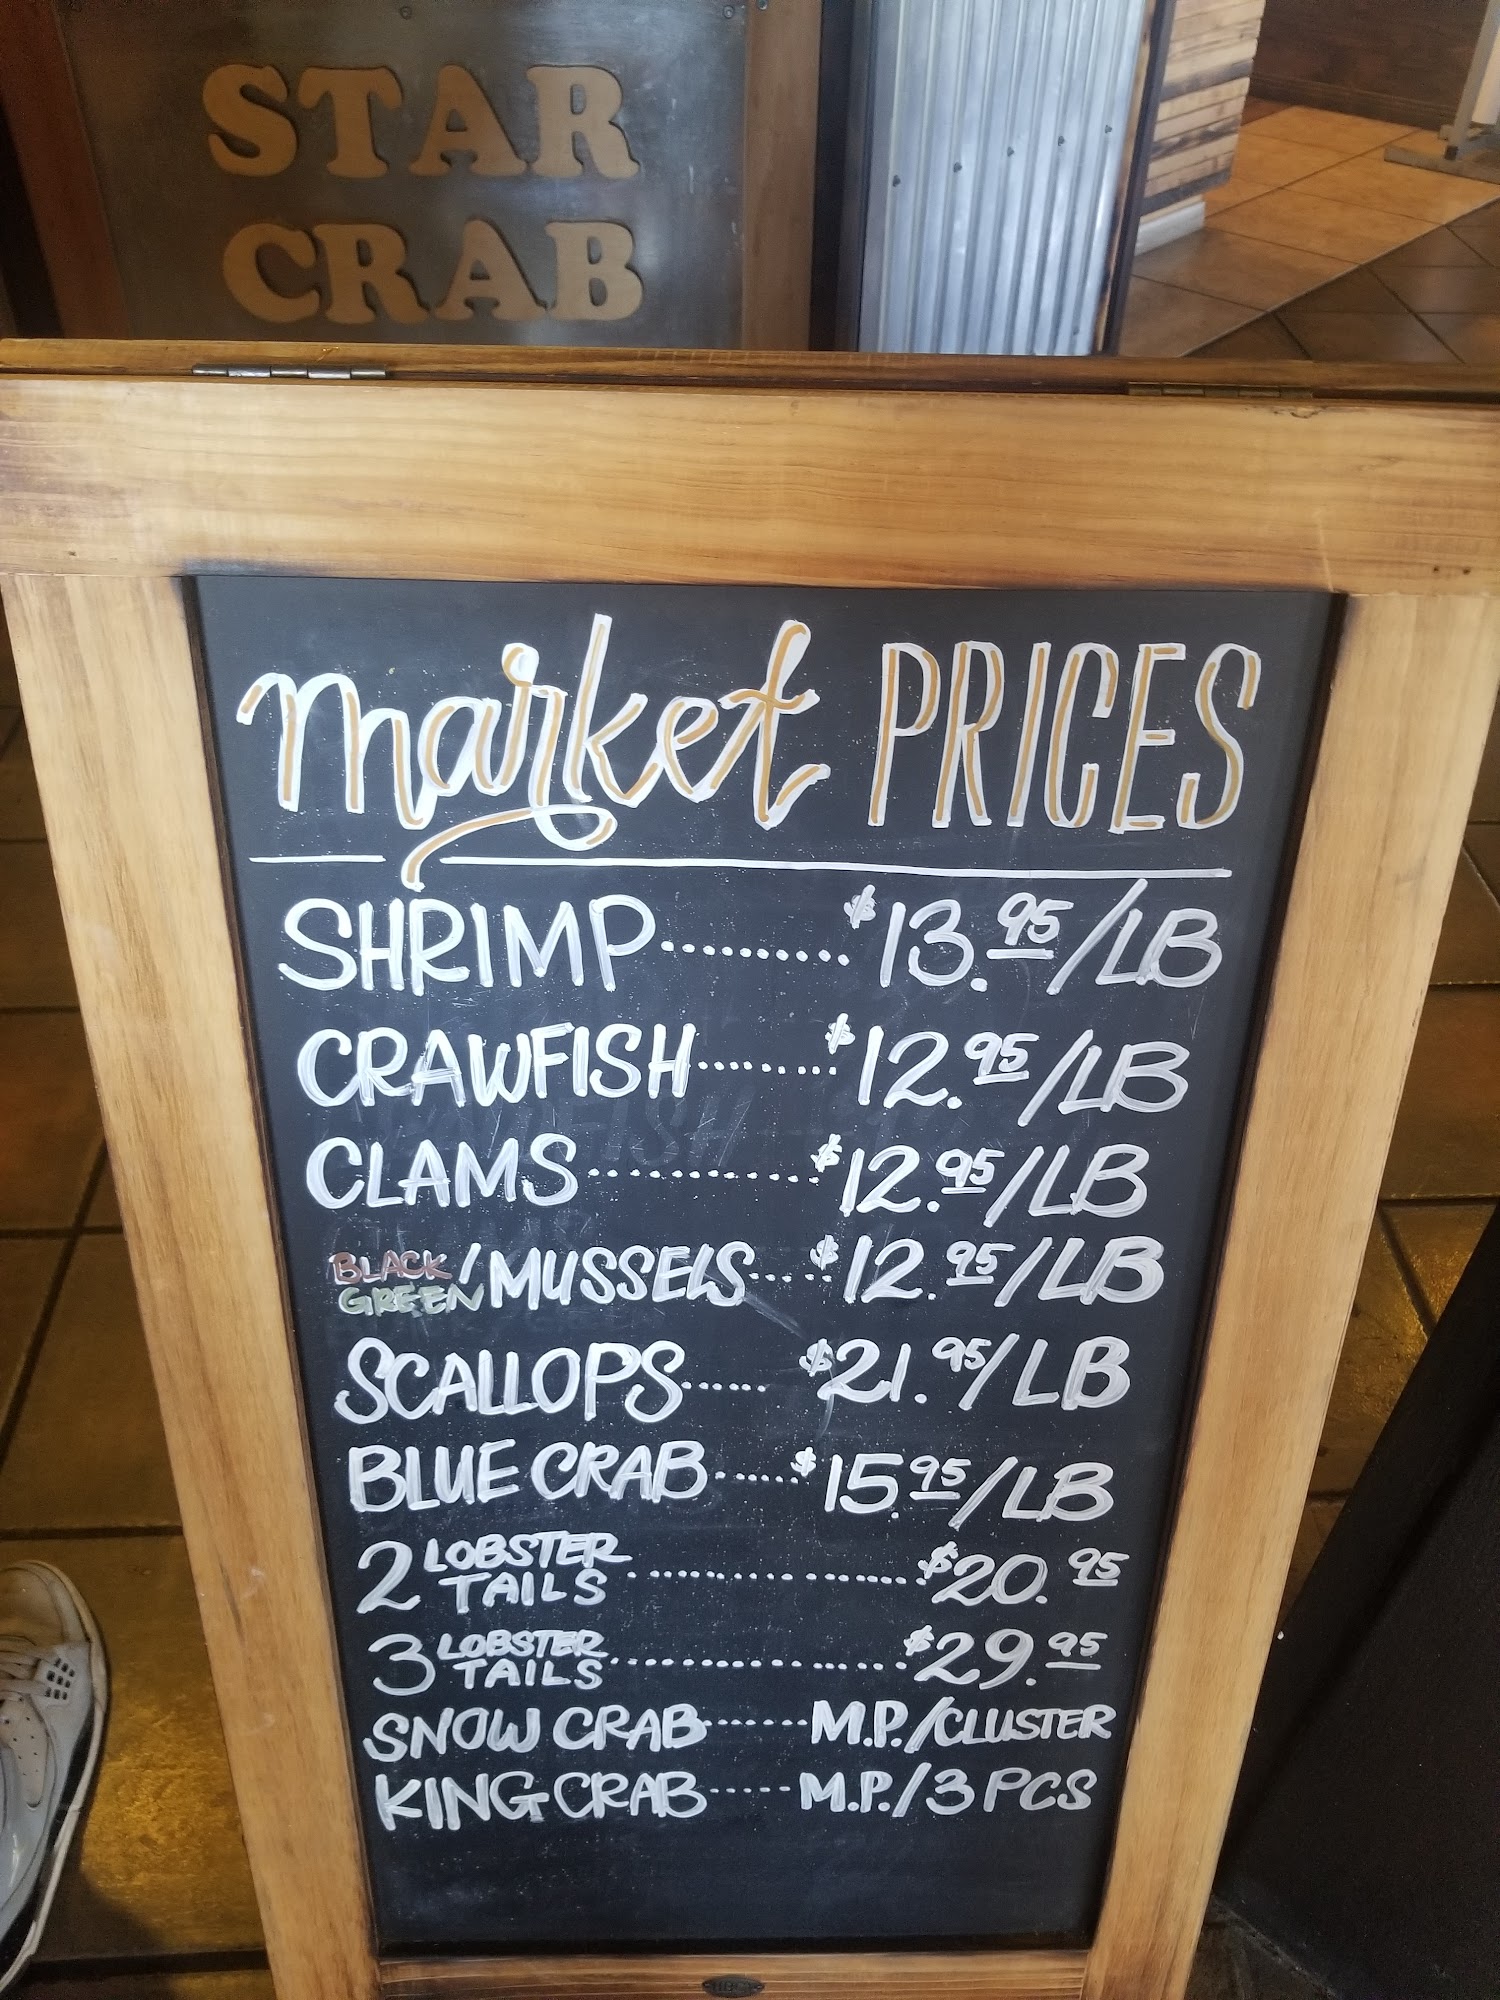 STAR
CRAB
market PRICES
SHRIMP......... $13.95/LB
CRAWFISH........ $12.95/LB
CLAMS............ $12.95/LB
BLACK/GREEN MUSSELS..... $12.95/LB
SCALLOPS...... $21.95/LB
BLUE CRAB...... $15.95/LB
2 LOBSTER TAILS.................. $20.95
3 LOBSTER TAILS.................. $29.95
SNOW CRAB........ M.P./CLUSTER
KING CRAB...... M.P./3 PCS